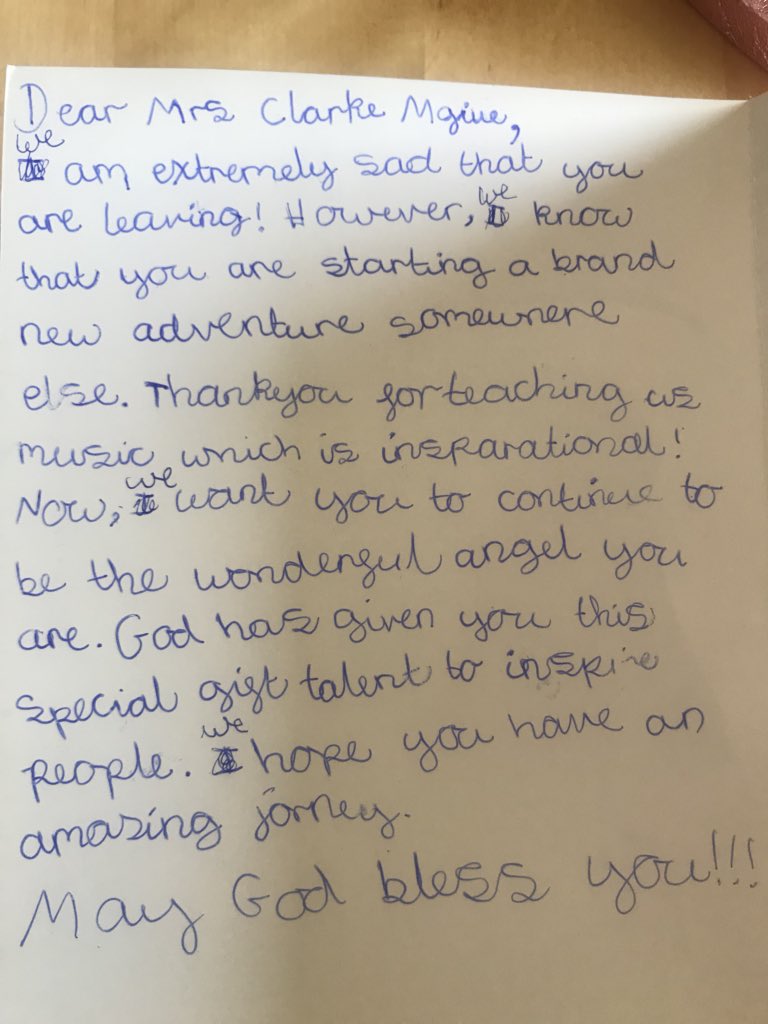 Dear Mrs Clarke Mgine,
we
am extremely sad that you
we
are leaving! However, know
that you are starting a brand
new adventure somewhere
else. Thankyou for teaching us
music which is insparational!
we
Now, want you to continue to
be the wonderful angel you
are. God has given you this
special gift talent to inspire
we
people. hope you have an
amazing jorney.
May God bless you!!!